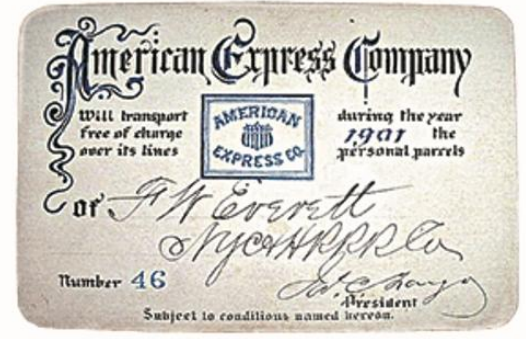 American Express Company
Will transport
free of charge
over its lines
AMERICAN
EXPRESS CO.
during the year
1901 the
personal parcels
of F W Everett
NYC & HRRR Co
Number 46
President
Subject to conditions named hereon.